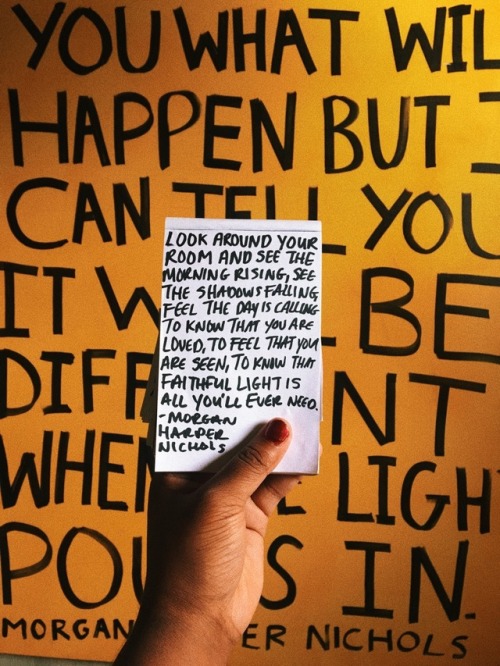 YOU WHAT WIL
HAPPEN BUT I
CAN TELL YOU
IT W BE
DIFF NT
WHEN LIGH
POU S IN.
MORGAN ER NICHOLS
LOOK AROUND YOUR
ROOM AND SEE THE
MORNING RISING, SEE
THE SHADOWS FALLING,
FEEL THE DAY IS CALLING
TO KNOW THAT YOU ARE
LOVED, TO FEEL THAT YOU
ARE SEEN, TO KNOW THAT
FAITHFUL LIGHT IS
ALL YOU'LL EVER NEED.
-MORGAN
HARPER
NICHOLS